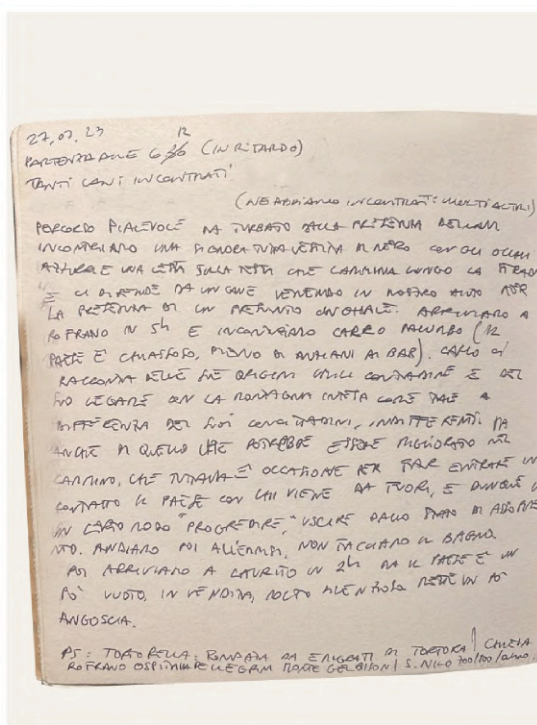 27,07,23
PARTENZA ALLE 6,30 (IN RITARDO)
TANTI CANI INCONTRATI
(NE ABBIAMO INCONTRATI: MOLTI ALTRI)
PERCORSO PIACEVOLE MA TURBATO DALLA PRESENZA DEI CANI
INCONTRIAMO UNA SIGNORA TUTTA VESTITA DI NERO CON GLI OCCHI
AZZURRI E UNA CESTA SULLA TESTA CHE CAMMINA LUNGO LA STRADA
E CI DIFENDE DA UN CANE VENENDO IN NOSTRO AIUTO PER
LA PRESENZA DI UN PRESUNTO CINGHIALE. ARRIVIAMO A
ROFRANO IN 5h E INCONTRIAMO CARLO PALUMBO (IL
PAESE È CHIASSOSO, PIENO DI ANZIANI AI BAR). CARLO CI
RACCONTA DELLE SUE ORIGINI UMILI CONTADINE E DEL
SUO LEGAME CON LA MONTAGNA INTESA COME TALE A
DIFFERENZA DEI SUOI CONCITTADINI, INDIFFERENTI. MA
ANCHE DI QUELLO CHE POTREBBE ESSERE MIGLIORATO NEL
CAMMINO, CHE TUTTAVIA È OCCASIONE PER FAR ENTRARE IN
CONTATTO IL PAESE CON CHI VIENE DA FUORI, E DUNQUE
IN CERTO MODO "PROGREDIRE," USCIRE DALLO STATO DI
ANDIAMO POI ALL'EREMI, NON FACCIAMO IL BAGNO.
POI ARRIVIAMO A LAURITO IN 2h MA IL PAESE È UN
PO' VUOTO, IN VENDITA, MOLTO SILENZIOSO METTE UN PO'
ANGOSCIA.
PS: TORTORELLA: FONDATA DA EMIGRATI DI TORTORA / CHIESA
ROFRANO OSPITAVA PELLEGRINI MONTE GELBISON / S. NILO